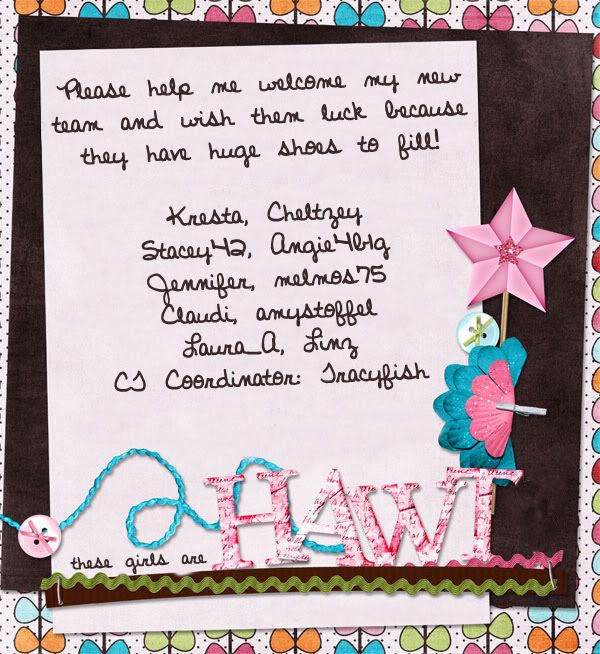 Please help me welcome my new
team and wish them luck because
they have huge shoes to fill!
Kresta, Cheltzey
Stacey42, Angie4b1g
Jennifer, melmos75
Claudi, amystoffel
Laura_A, Linz
CT Coordinator: Tracyfish
these girls are HAWT